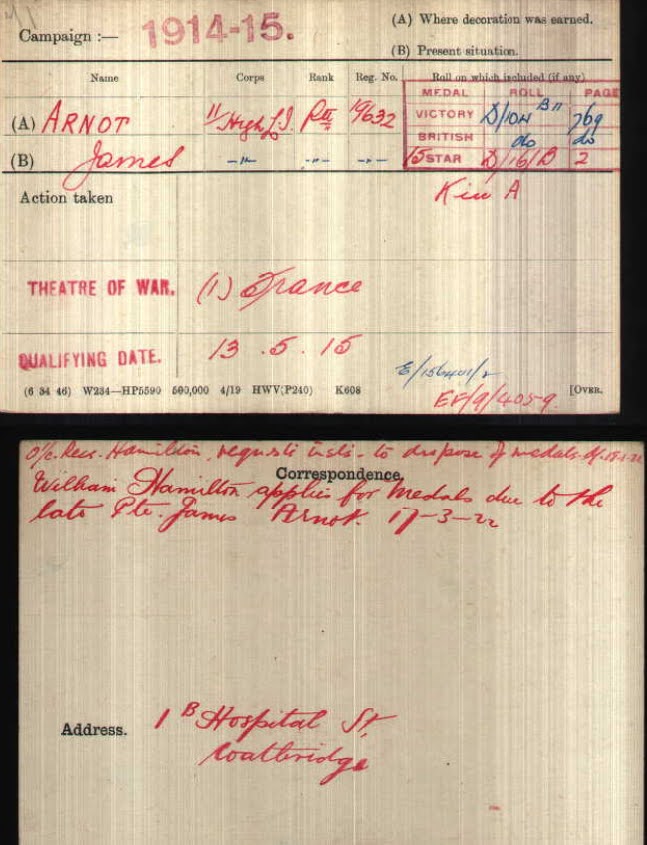 (A) Where decoration was earned.
Campaign :— 1914-15.
(B) Present situation.
Name Corps Rank Reg. No. Roll on which included (if any)
MEDAL ROLL PAGE
(A) ARNOT 11/High L.I. Pte 19632
VICTORY D/104 B11 769
BRITISH do do
(B) James —"— —"— 15 STAR D/16/B 2
Action taken
K in A
THEATRE OF WAR. (1) France
QUALIFYING DATE. 13 . 5 . 15
(6 34 46) W234—HP5590 500,000 4/19 HWV(P240) K608 [OVER.
EF/9/4059
O/c. Recs. Hamilton, requests insts. to dispose of medals.
Correspondence.
William Hamilton applies for Medals due to the
late Pte. James Arnot. 17-3-22
Address. 1 B Hospital St,
Coatbridge